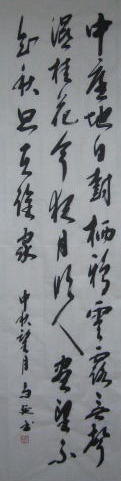 中庭地白樹栖鴉冷露无聲
濕桂花今夜月明人盡望不
知秋思在誰家
中秋望月 书